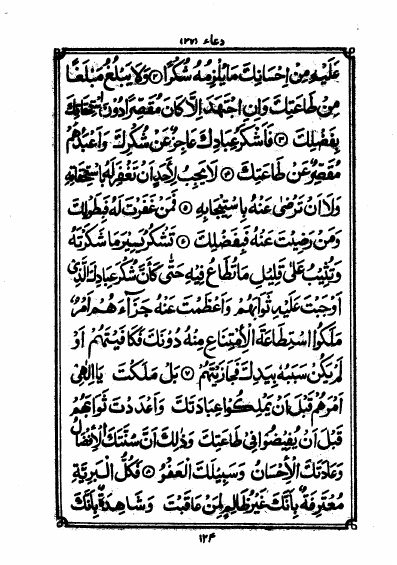 دعاء (٣٧)
عَلَيْهِ مِنْ اِحْسَانِكَ مَا يُلْزِمُهُ شُكْرًا ② وَلَا يَبْلُغُ مَبْلَغًا
مِنْ طَاعَتِكَ وَاِنِ اجْتَهَدَ اِلَّا كَانَ مُقَصِّرًا دُوْنَ اسْتِحْقَاقِكَ
بِفَضْلِكَ ③ فَاَشْكَرُ عِبَادِكَ عَاجِزٌ عَنْ شُكْرِكَ وَاَعْبَدُهُمْ
مُقَصِّرٌ عَنْ طَاعَتِكَ ④ لَا يَجِبُ لِاَحَدٍ اَنْ تَغْفِرَ لَهُ بِاسْتِحْقَاقِهِ
وَلَا اَنْ تَرْضٰى عَنْهُ بِاسْتِيْجَابِهِ ⑤ فَمَنْ غَفَرْتَ لَهُ فَبِطَوْلِكَ
وَمَنْ رَضِيْتَ عَنْهُ فَبِفَضْلِكَ ⑥ تَشْكُرُ يَسِيْرَ مَا شَكَرْتَهُ
وَتُثِيْبُ عَلٰى قَلِيْلِ مَا تُطَاعُ فِيْهِ حَتّٰى كَاَنَّ شُكْرَ عِبَادِكَ الَّذِىْ
اَوْجَبْتَ عَلَيْهِ ثَوَابَهُمْ وَاَعْظَمْتَ عَنْهُ جَزَآءَهُمْ اَمْرٌ
مَلَكُوا اسْتِطَاعَةَ الْاِمْتِنَاعِ مِنْهُ دُوْنَكَ فَكَافَيْتَهُمْ اَوْ
لَمْ يَكُنْ سَبَبُهُ بِيَدِكَ فَجَازَيْتَهُمْ ⑦ بَلْ مَلَكْتَ يَا اِلٰهِىْ
اَمْرَهُمْ قَبْلَ اَنْ يَمْلِكُوْا عِبَادَتَكَ وَاَعْدَدْتَ ثَوَابَهُمْ
قَبْلَ اَنْ يُفِيْضُوْا فِىْ طَاعَتِكَ وَذٰلِكَ اَنَّ سُنَّتَكَ الْاِفْضَالُ
وَعَادَتَكَ الْاِحْسَانُ وَسَبِيْلَكَ الْعَفْوُ ⑧ فَكُلُّ الْبَرِيَّةِ
مُعْتَرِفَةٌ بِاَنَّكَ غَيْرُ ظَالِمٍ لِمَنْ عَاقَبْتَ وَشَاهِدَةٌ بِاَنَّكَ
١٢۴